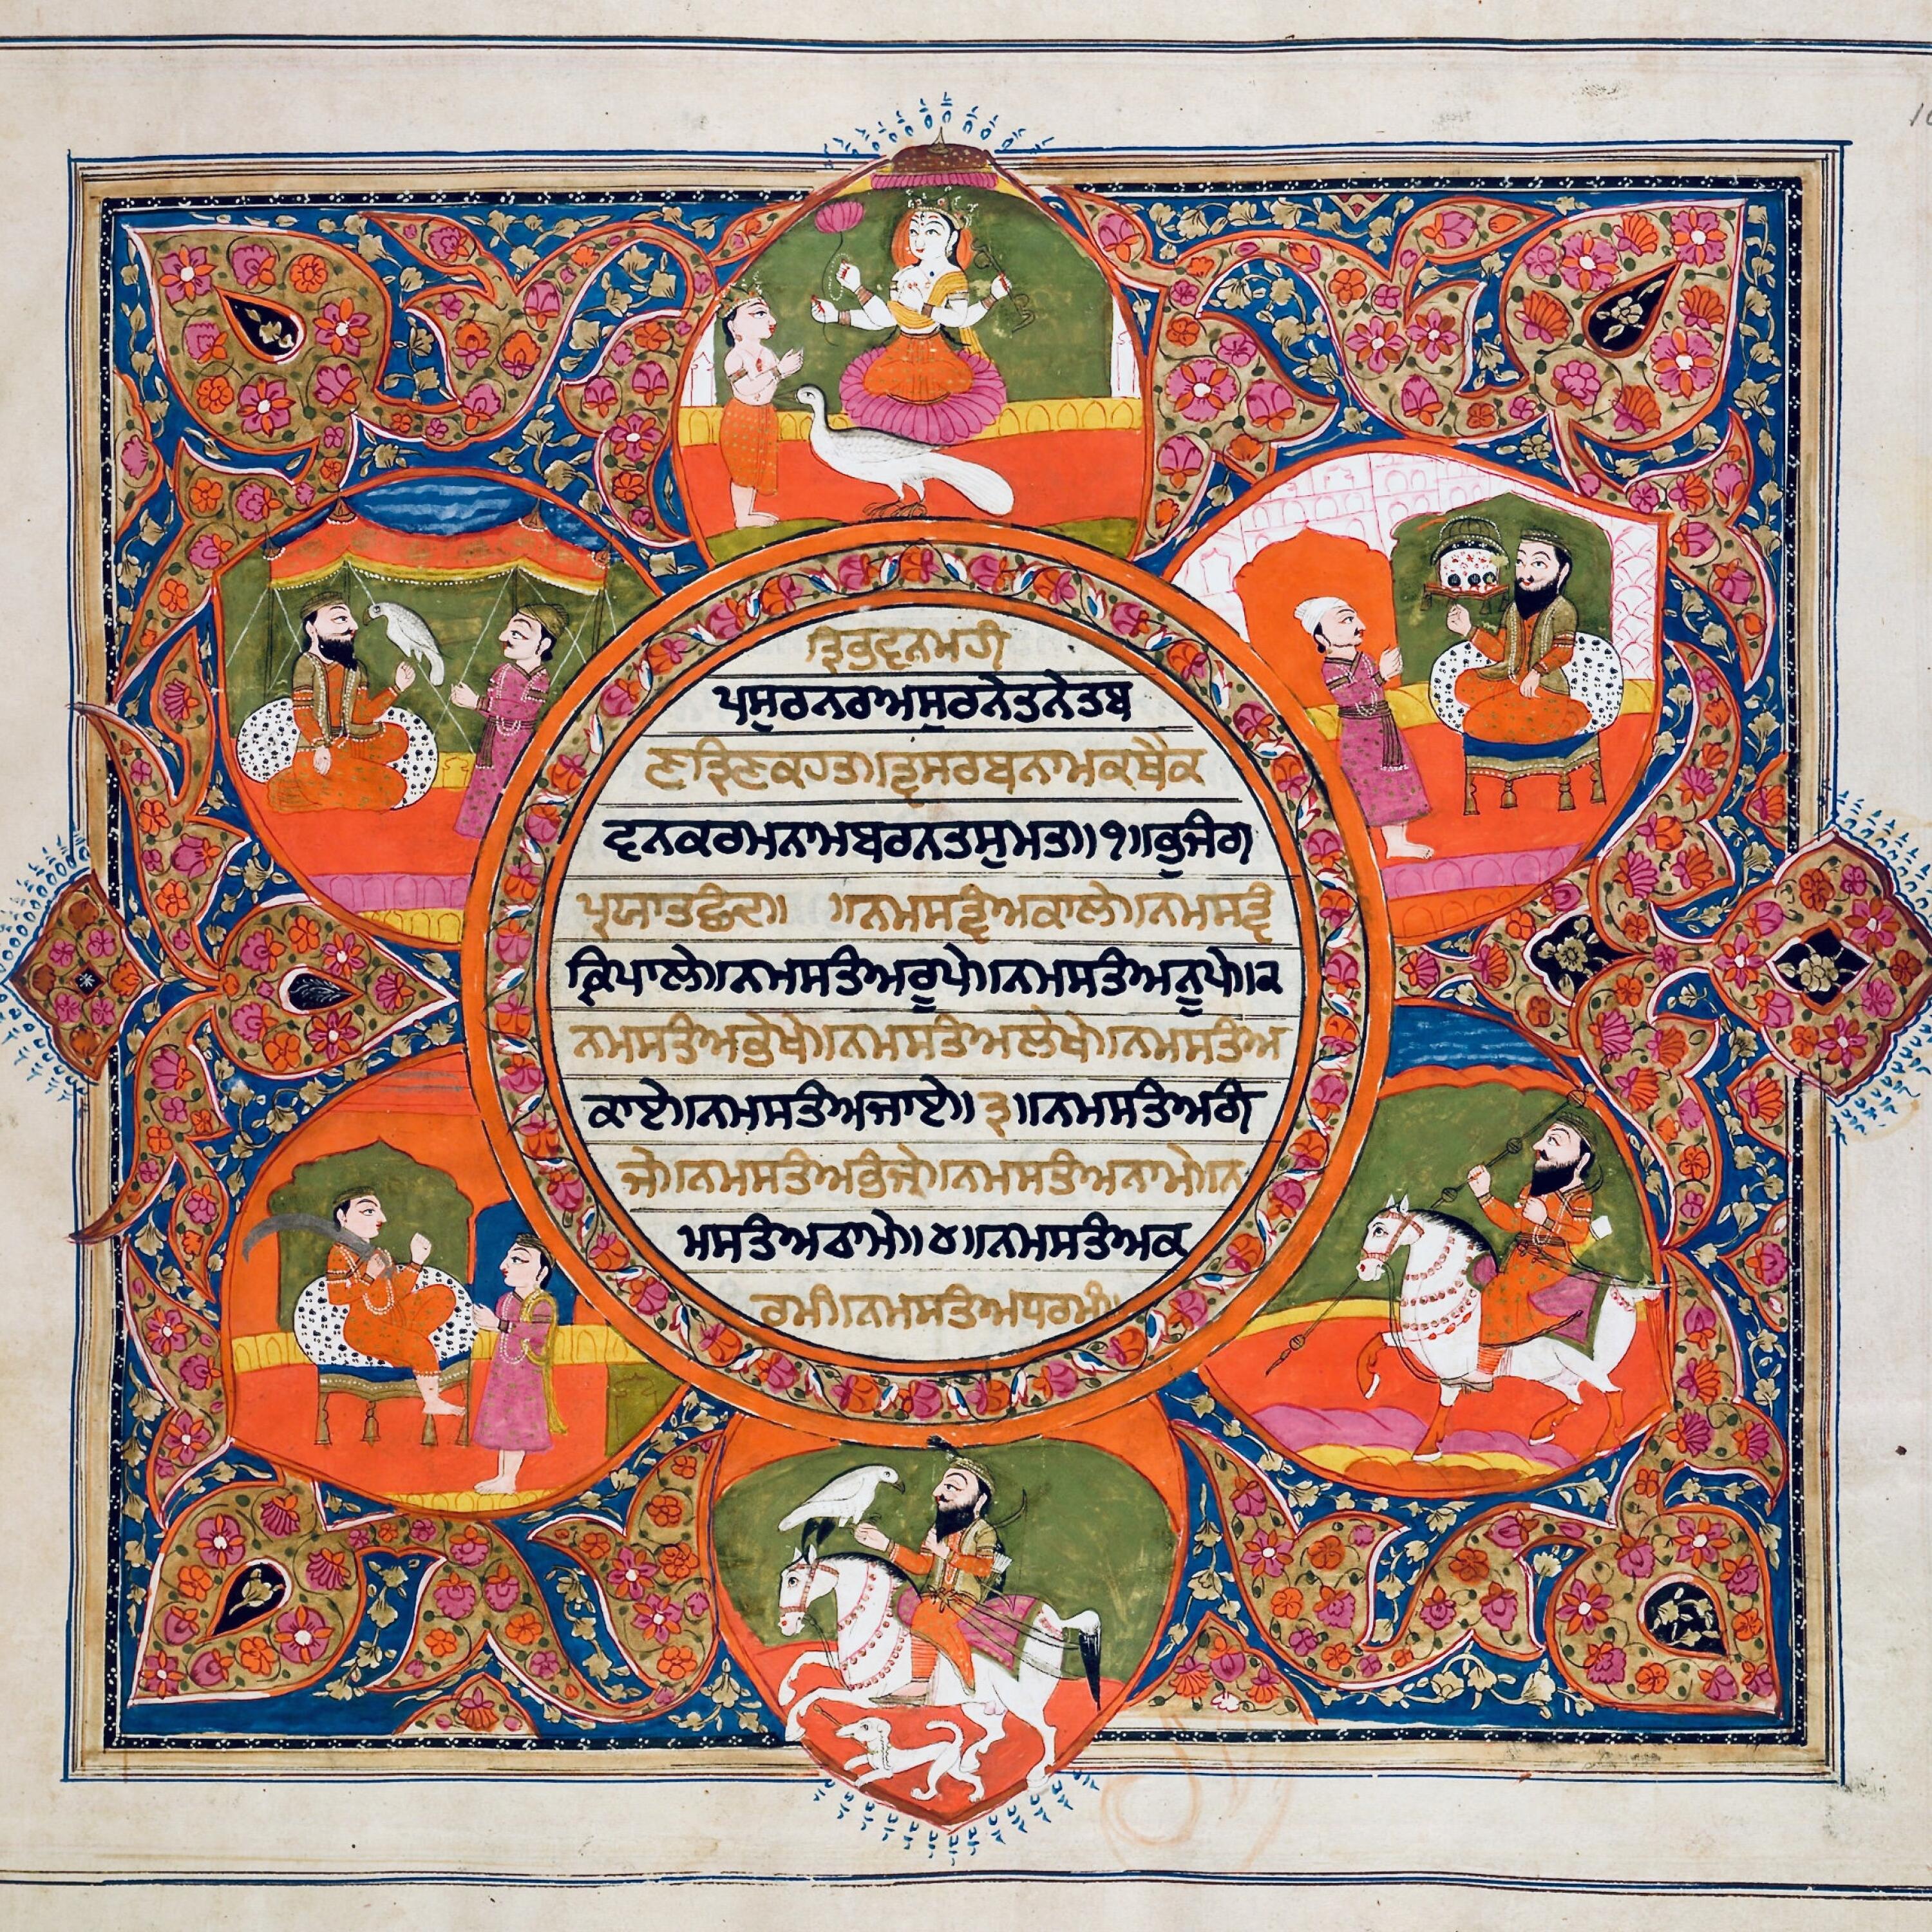 ਤ੍ਰਿਭੁਵਨਮਹੀ
ਪਸੁਰਨਰਅਸੁਰਨੇਤਨੇਤਬ
ਣਤ੍ਰਿਣਕਹਤ॥ਤ੍ਵਸਰਬਨਾਮਕਥੈਕ
ਵਨਕਰਮਨਾਮਬਰਨਤਸੁਮਤ॥੧॥ਭੁਜੰਗ
ਪ੍ਰਯਾਤਛੰਦ॥ ॥ਨਮਸਤ੍ਵੰਅਕਾਲੇ॥ਨਮਸਤ੍ਵੰ
ਕ੍ਰਿਪਾਲੇ॥ਨਮਸਤੰਅਰੂਪੇ॥ਨਮਸਤੰਅਨੂਪੇ॥੨
ਨਮਸਤੰਅਭੇਖੇ॥ਨਮਸਤੰਅਲੇਖੇ॥ਨਮਸਤੰਅ
ਕਾਏ॥ਨਮਸਤੰਅਜਾਏ॥੩॥ਨਮਸਤੰਅਗੰ
ਜੇ॥ਨਮਸਤੰਅਭੰਜੇ॥ਨਮਸਤੰਅਨਾਮੇ॥ਨ
ਮਸਤੰਅਠਾਮੇ॥੪॥ਨਮਸਤੰਅਕ
ਰਮੰ॥ਨਮਸਤੰਅਧਰਮੰ॥